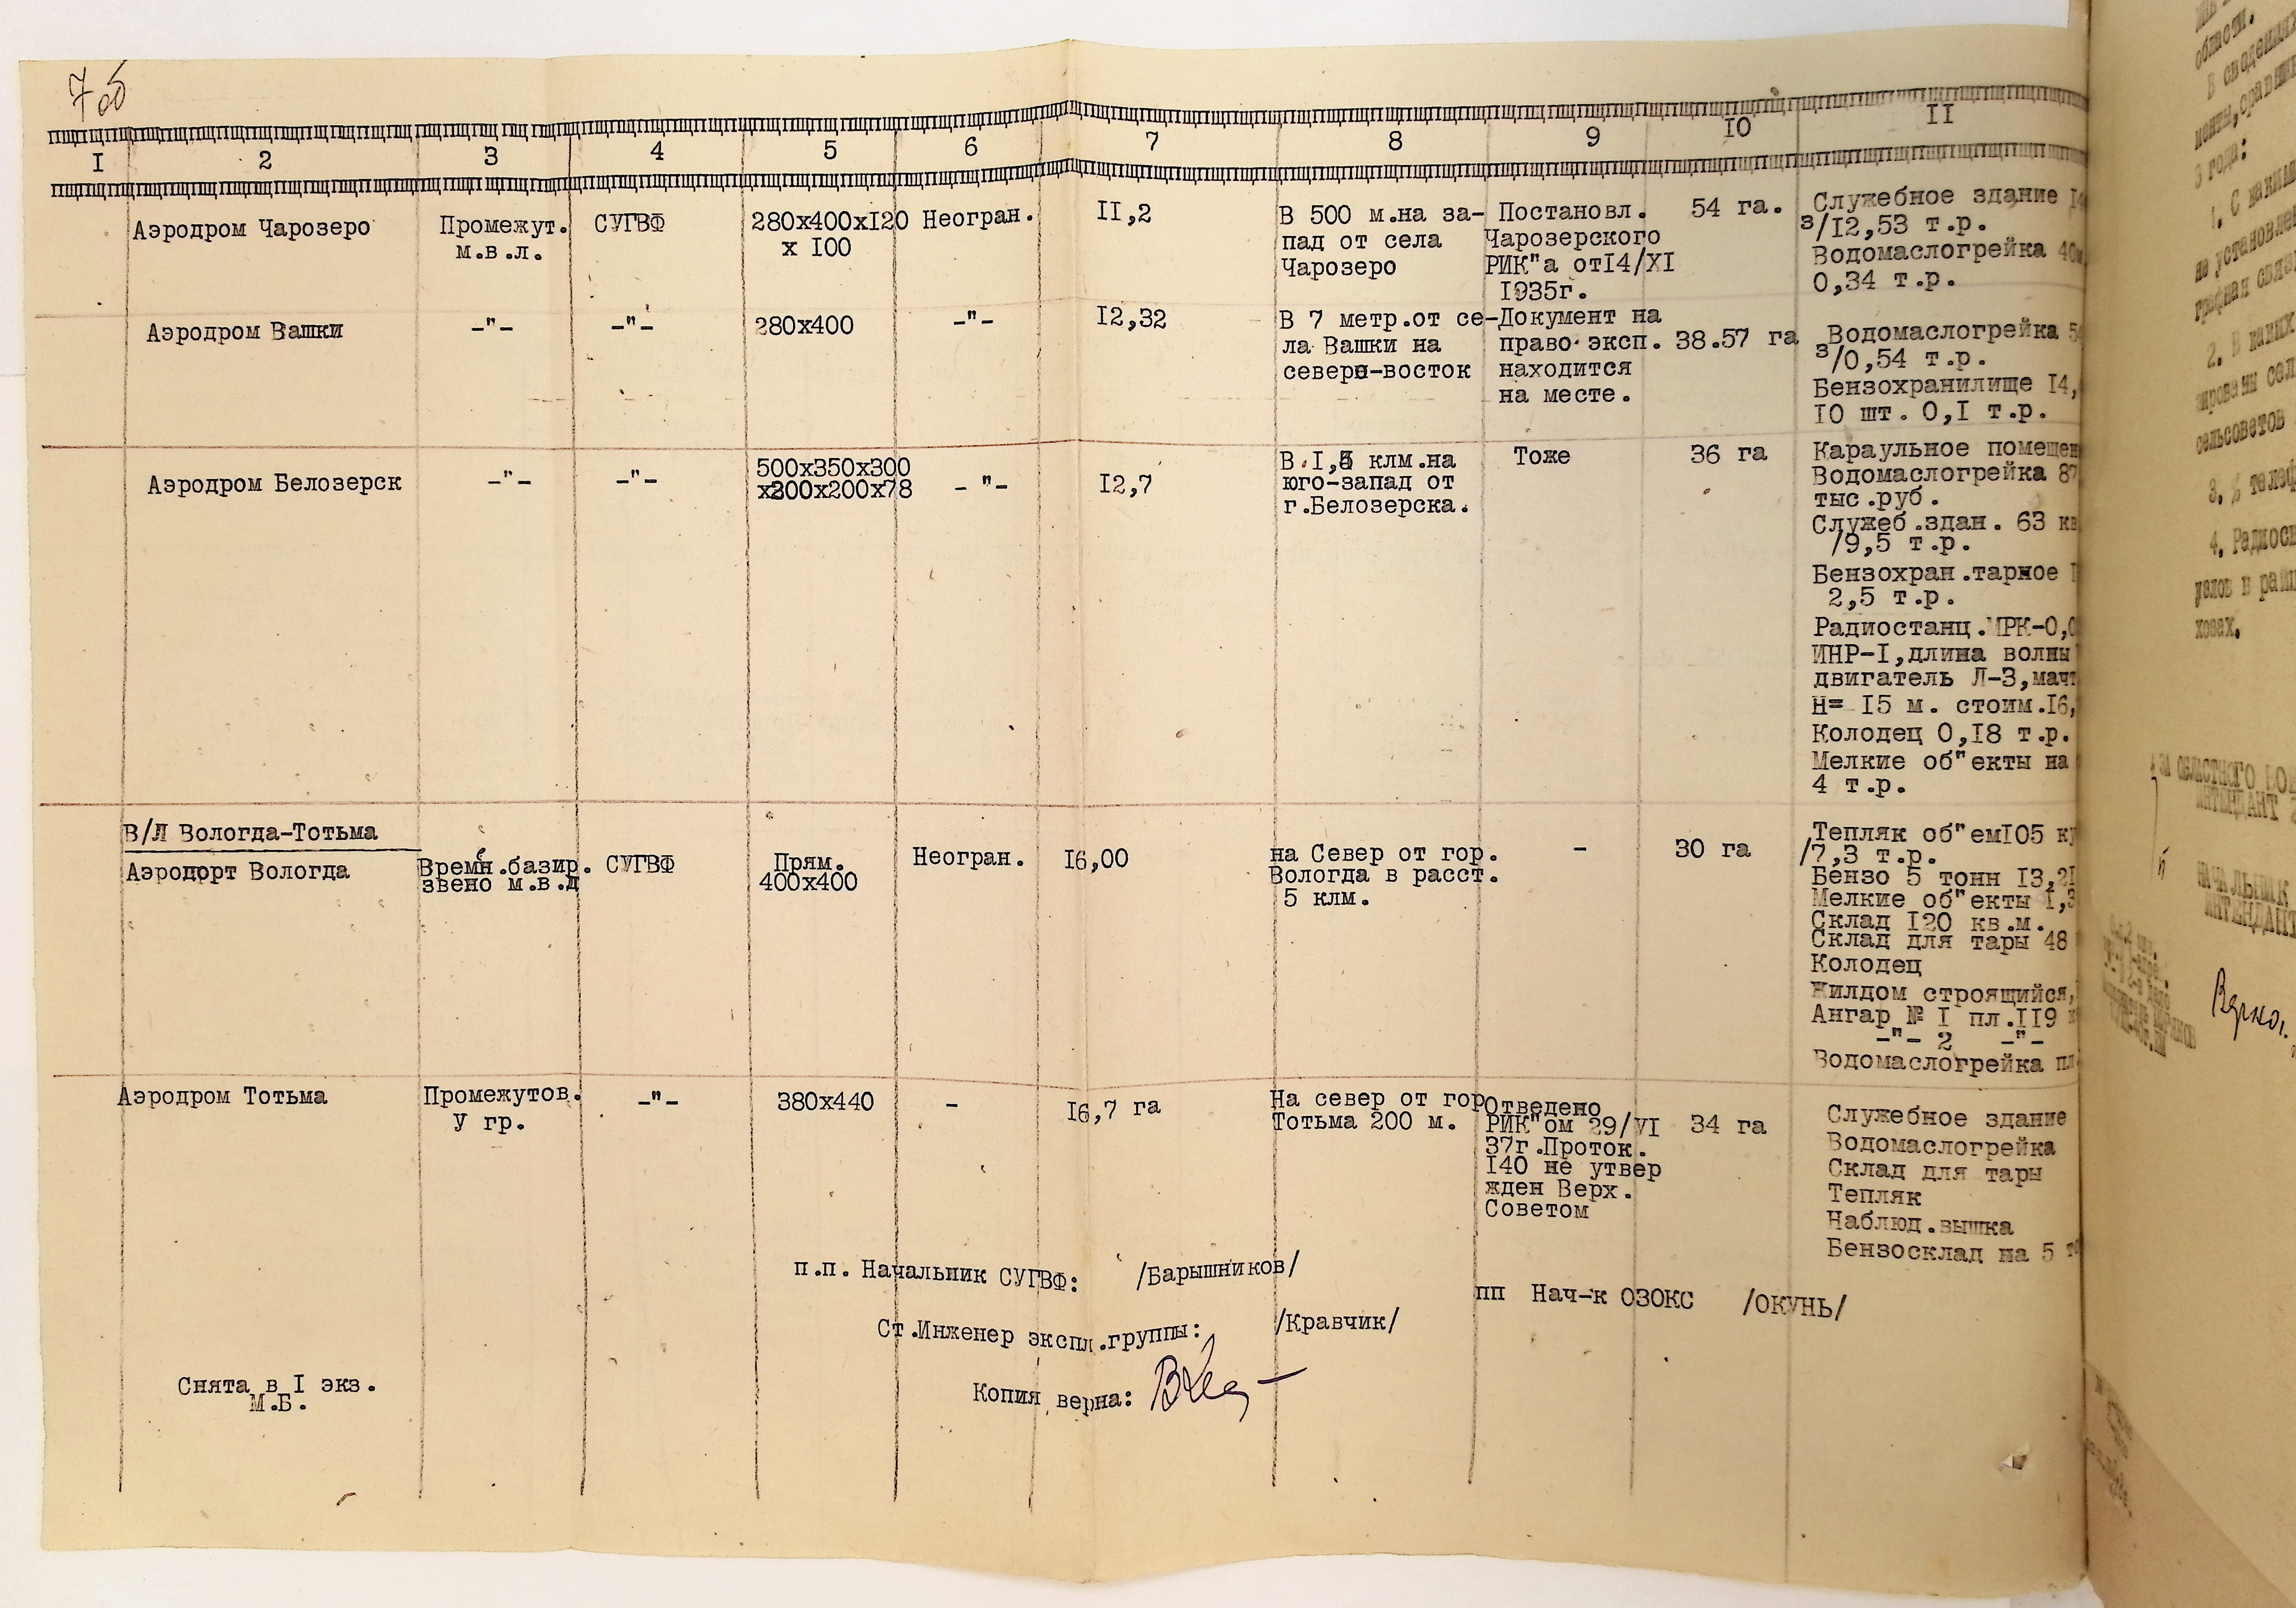 7об
I 2 3 4 5 6 7 8 9 IO II
Аэродром Чарозеро
Промежут.
м.в.л.
СУГВФ
280х400хI20
х I00
Неогран.
II,2
В 500 м.на за-
пад от села
Чарозеро
Постановл.
Чарозерского
РИК"а отI4/XI
I935г.
54 га.
Служебное здание
3/I2,53 т.р.
Водомаслогрейка
0,34 т.р.
Аэродром Вашки
-"-
-"-
280х400
-"-
I2,32
В 7 метр.от се-
ла Вашки на
северо-восток
Документ на
право эксп.
находится
на месте.
38.57 га
Водомаслогрейка
3/0,54 т.р.
Бензохранилище I4,
I0 шт. 0,I т.р.
Аэродром Белозерск
-"-
-"-
500х350х300
х200х200х78
-"-
I2,7
В I,5 клм.на
юго-запад от
г.Белозерска.
Тоже
36 га
Караульное помещен
Водомаслогрейка 87
тыс.руб.
Служеб.здан. 63 кв
/9,5 т.р.
Бензохран.тарное
2,5 т.р.
Радиостанц.МРК-0,0
ИНР-I,длина волны
двигатель Л-3,мачт
Н= I5 м. стоим.I6,
Колодец 0,I8 т.р.
Мелкие об"екты на
4 т.р.
В/Л Вологда-Тотьма
Аэропорт Вологда
Времен.базир.
звено м.в.л
СУГВФ
Прям.
400х400
Неогран.
I6,00
на Север от гор.
Вологда в расст.
5 клм.
-
30 га
Тепляк об"емI05 ку
/7,3 т.р.
Бензо 5 тонн I3,2I
Мелкие об"екты I,3
Склад I20 кв.м.
Склад для тары 48
Колодец
Жилдом строящийся,
Ангар № I пл.II9
-"- 2 -"-
Водомаслогрейка пл
Аэродром Тотьма
Промежутов.
У гр.
-"-
380х440
-
I6,7 га
На север от гор
Тотьма 200 м.
Отведено
РИК"ом 29/VI
37г.Проток.
I40 не утвер
жден Верх.
Советом
34 га
Служебное здание
Водомаслогрейка
Склад для тары
Тепляк
Наблюд.вышка
Бензосклад на 5 т
п.п. Начальник СУГВФ: /Барышников/
пп Нач-к ОЗОКС /ОКУНЬ/
Ст.Инженер экспл.группы: /Кравчик/
Копия верна:
Снята в I экз.
М.Б.
области.
3 года:
1. С каким
не установлен
2. В каких
сельсоветов
3. % телеф
4. Радиос
узлов в рай
хозах.
ИНТЕНДАНТ
НАЧАЛЬНИК
ИНТЕНДАНТ